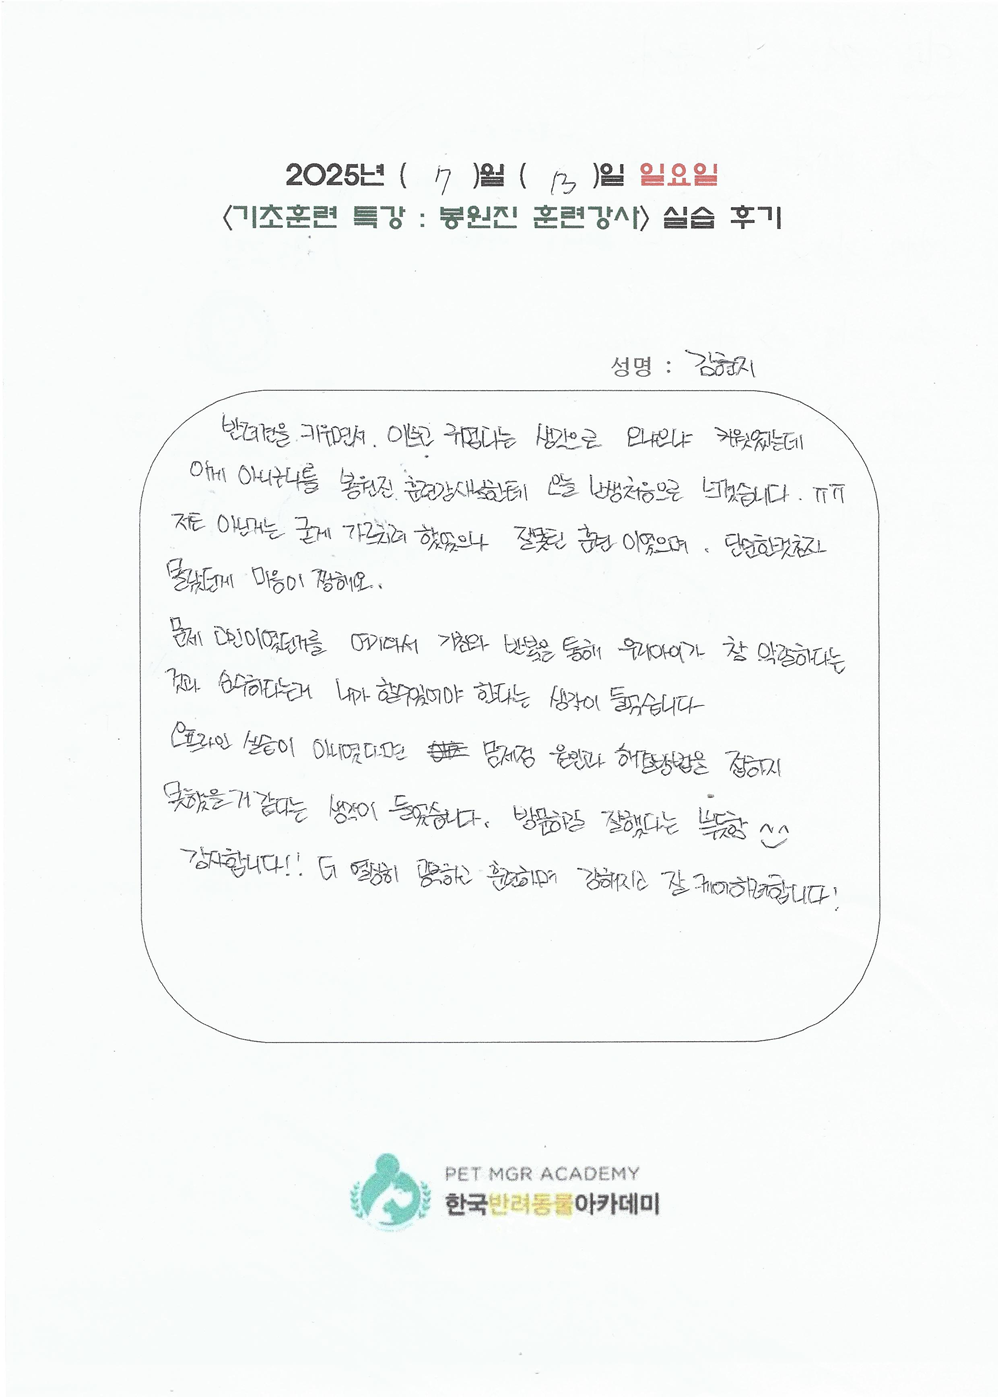 2025년 ( 7 )월 ( 13 )일 일요일
<기초훈련 특강 : 봉원진 훈련강사> 실습 후기
성명 : 김현지
반려견을 키우면서, 이쁘고 귀엽다는 생각으로 오냐오냐 키웠었는데
이게 아니구나를 봉원진 훈련강사님한테 오늘 난생처음으로 느꼈습니다. ㅠㅠ
아닌거는 가르치려 했었으나 잘못된 훈련 이였으며, 단순한것초차
몰랐던게 마음이 짱해요..
문제 이였던거를 여기와서 기초와 반복을 통해 우리아이가 참 하다는
것과 순수하다는거 내가 할수있어야 한다는 생각이 들었습니다
오프라인 실습이 아니였다면 문제점 원인과 해결방법을 잡히지
못했을거 같다는 생각이 들었습니다. 방문하길 잘했다는 뿌듯함 ^^
감사합니다!! 더 열심히 공부하고 훈련하며 강해지고 잘 케어하려합니다!
PET MGR ACADEMY
한국반려동물아카데미